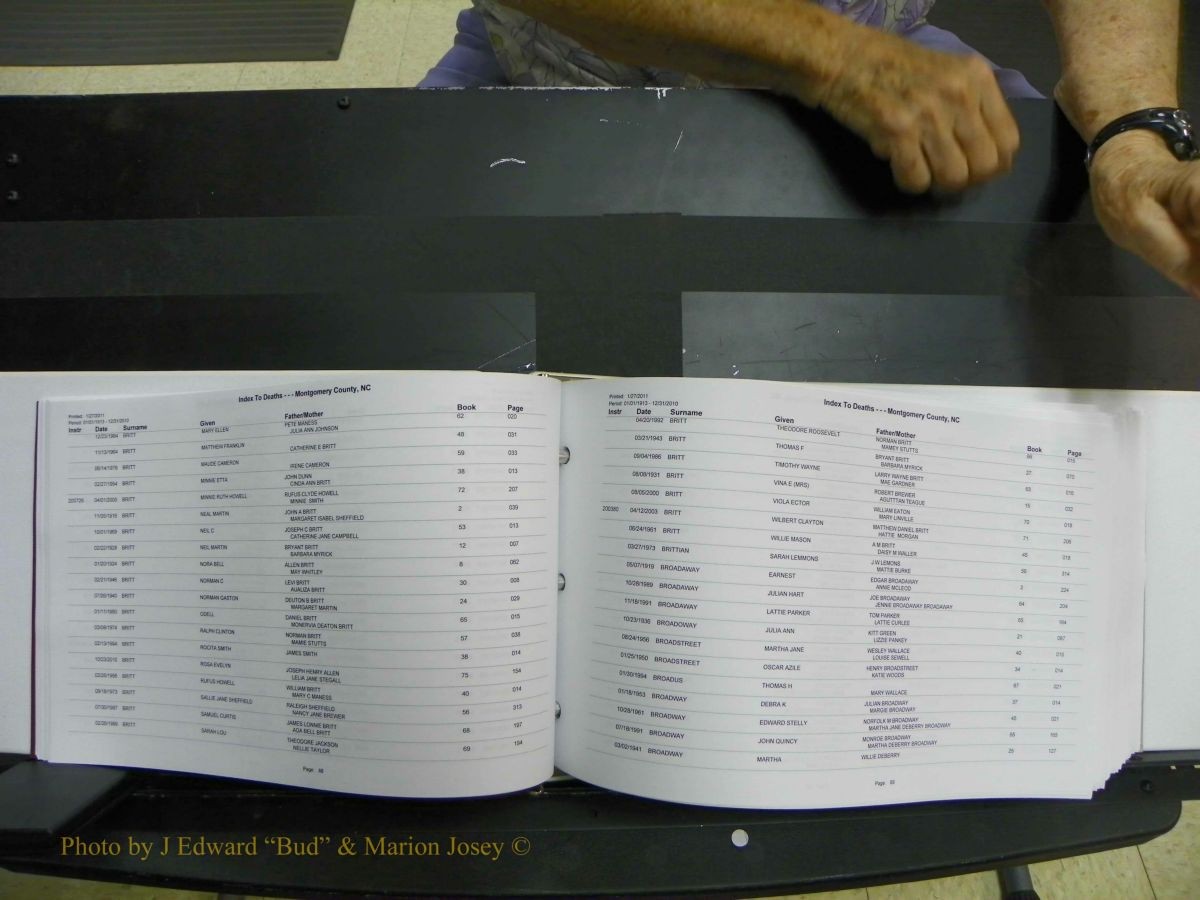 Index To Deaths - - - Montgomery County, NC
Printed: 1/27/2011
Period: 01/01/1913 - 12/31/2010
Instr Date Surname Given Father/Mother Book Page
12/23/1984 BRITT MARY ELLEN PETE MANESS 62 020
JULIA ANN JOHNSON
11/13/1964 BRITT MATTHEW FRANKLIN 48 031
CATHERINE E BRITT
BRITT MAUDE CAMERON 59 033
IRENE CAMERON
BRITT MINNIE ETTA JOHN DUNN 38 013
CINDA ANN BRITT
BRITT MINNIE RUTH HOWELL RUFUS CLYDE HOWELL 72 207
MINNIE SMITH
BRITT NEAL MARTIN JOHN A BRITT 2 039
MARGARET ISABEL SHEFFIELD
BRITT NEIL C JOSEPH C BRITT 53 013
CATHERINE JANE CAMPBELL
BRITT NEIL MARTIN BRYANT BRITT 12 007
BARBARA MYRICK
BRITT NORA BELL ALLEN BRITT 8 062
MAY WHITLEY
BRITT NORMAN C LEVI BRITT 30 008
AUALIZA BRITT
BRITT NORMAN GASTON DEUTON B BRITT 24 029
MARGARET MARTIN
BRITT ODELL DANIEL BRITT 65 015
MONERVIA DEATON BRITT
BRITT RALPH CLINTON NORMAN BRITT 57 038
MAMIE STUTTS
BRITT ROCITA SMITH JAMES SMITH 38 014
BRITT ROSA EVELYN JOSEPH HENRY ALLEN 75 154
LELIA JANE STEGALL
BRITT RUFUS HOWELL WILLIAM BRITT 40 014
MARY C MANESS
BRITT SALLIE JANE SHEFFIELD RALEIGH SHEFFIELD 56 313
NANCY JANE BREWER
BRITT SAMUEL CURTIS JAMES LONNIE BRITT 68 197
ADA BELL BRITT
BRITT SARAH LOU THEODORE JACKSON 69 194
NELLIE TAYLOR
Page
Index To Deaths - - - Montgomery County, NC
Printed: 1/27/2011
Period: 01/01/1913 - 12/31/2010
Instr Date Surname Given Father/Mother Book Page
04/20/1992 BRITT THEODORE ROOSEVELT NORMAN BRITT 015
MAMEY STUTTS
03/21/1943 BRITT THOMAS F BRYANT BRITT 27 070
BARBARA MYRICK
09/04/1986 BRITT TIMOTHY WAYNE LARRY WAYNE BRITT 63 016
MAE GARDNER
08/08/1931 BRITT VINA E (MRS) ROBERT BREWER 15 032
AGUTTTAN TEAGUE
08/05/2000 BRITT VIOLA ECTOR WILLIAM EATON 70 018
MARY LINVILLE
200380 04/12/2003 BRITT WILBERT CLAYTON MATTHEW DANIEL BRITT 71 206
HATTIE MORGAN
06/24/1961 BRITT WILLIE MASON A M BRITT 45 018
DAISY M WALLER
03/27/1973 BRITTIAN SARAH LEMMONS J W LEMONS 56 314
MATTIE BURKE
05/07/1919 BROADAWAY EARNEST EDGAR BROADAWAY 2 224
ANNIE MCLEOD
10/28/1989 BROADAWAY JULIAN HART JOE BROADAWAY 64 204
JENNIE BROADAWAY BROADAWAY
11/18/1991 BROADAWAY LATTIE PARKER TOM PARKER 65
LATTIE CURLEE
10/23/1936 BROADOWAY JULIA ANN KITT GREEN 21 087
LIZZIE PANKEY
08/24/1956 BROADSTREET MARTHA JANE WESLEY WALLACE 40 010
LOUISE SEWELL
01/25/1950 BROADSTREET OSCAR AZILE HENRY BROADSTREET 34 014
KATIE WOODS
01/30/1994 BROADUS THOMAS H 67 021
MARY WALLACE
01/18/1953 BROADWAY DEBRA K JULIAN BROADWAY 37 014
MARGIE BROADWAY
10/28/1961 BROADWAY EDWARD STELLY NORFOLK M BROADWAY 45 021
MARTHA JANE DEBERRY BROADWAY
07/18/1991 BROADWAY JOHN QUINCY MONROE BROADWAY 65 165
MARTHA DEBERRY BROADWAY
03/02/1941 BROADWAY MARTHA WILLIE DEBERRY 25 127
Page
Photo by J Edward “Bud” & Marion Josey ©